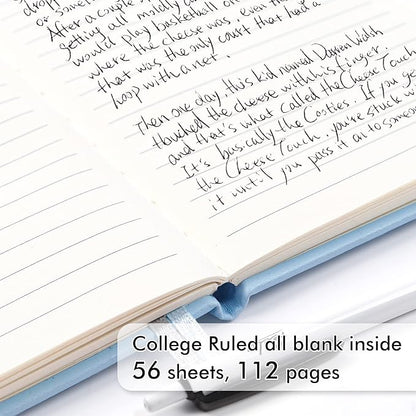 After a couple
getting all mildly
would play basketball on
where the cheese was, even
that was the only court that had a
hoop with a net.
Then one day, this kid named Darren Walsh
touched the cheese with his finger.
and that's what called the Cheese Touch
It's basically the Cooties. If you get
the Cheese Touch, you're stuck
it until you pass it on to someone
College Ruled all blank inside
56 sheets, 112 pages